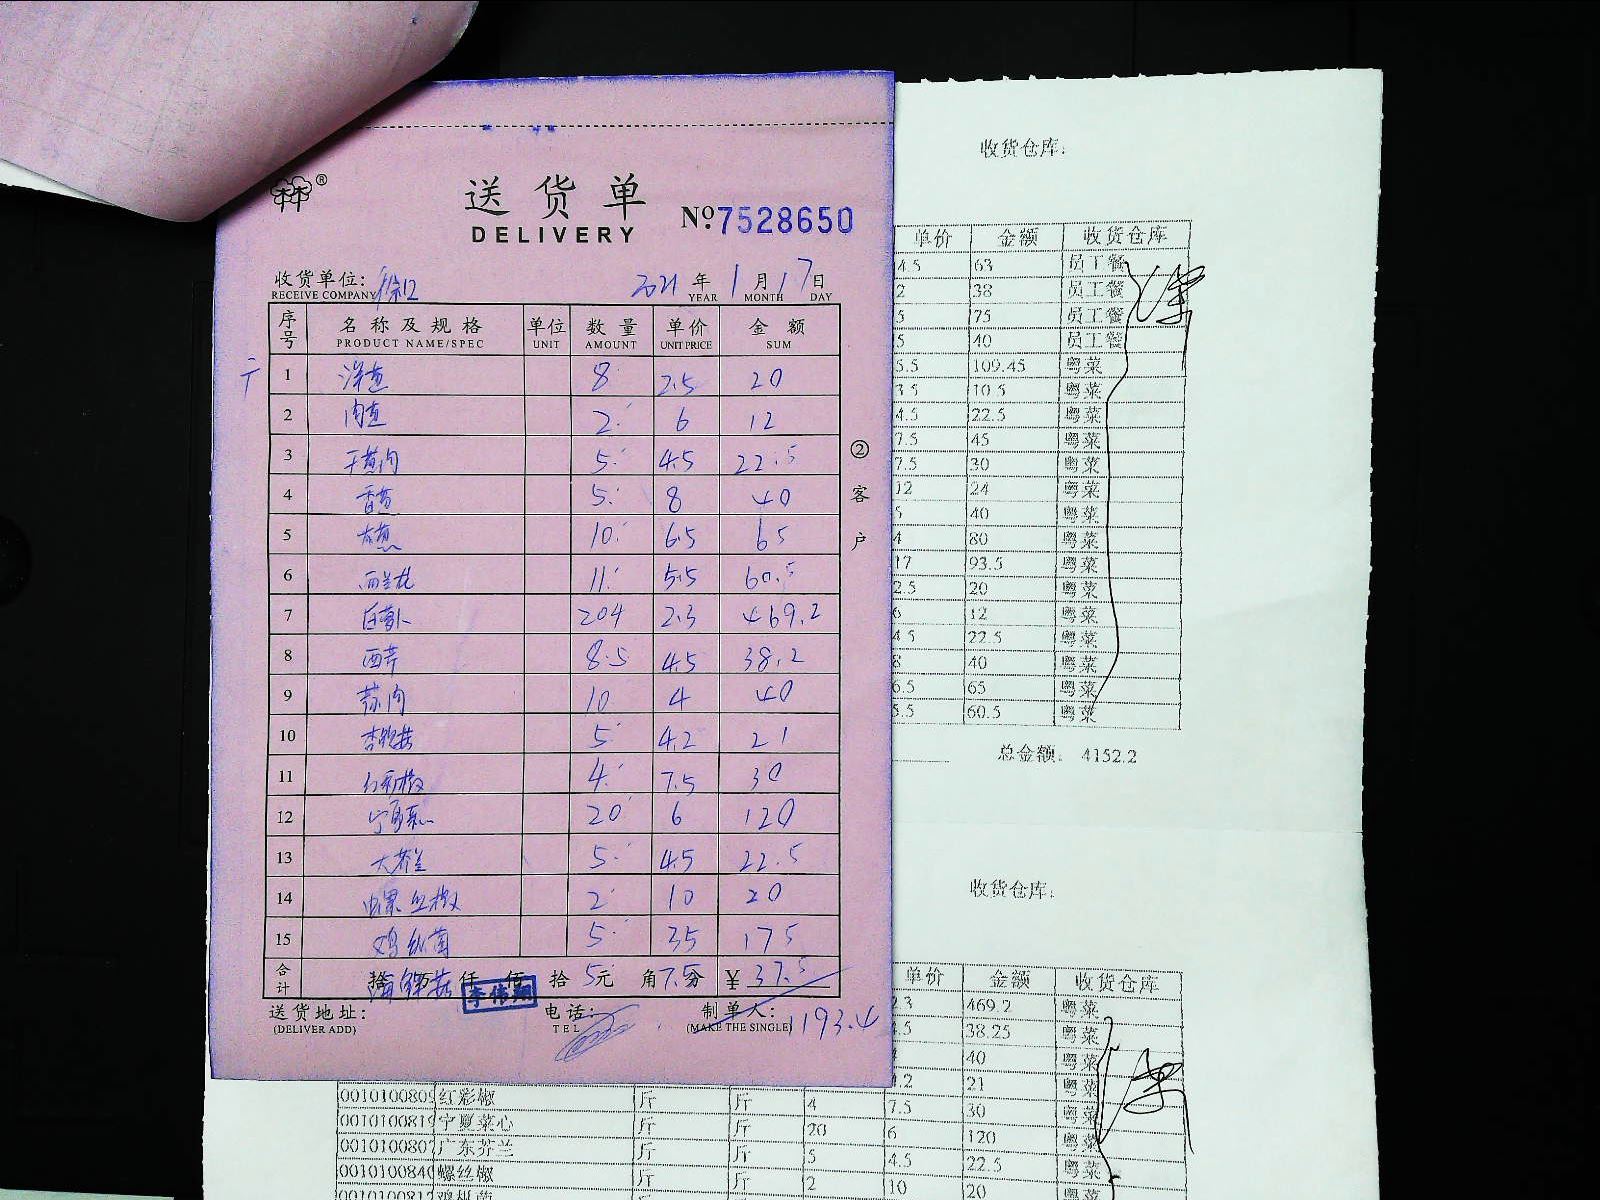 送货单
DELIVERY
No 7528650
收货单位:
RECEIVE COMPANY
2021 年 1 月 17 日
YEAR MONTH DAY
序号 名称及规格 单位 数量 单价 金额
PRODUCT NAME/SPEC UNIT AMOUNT UNIT PRICE SUM
1 洋葱 8 2.5 20
2 肉葱 2 6 12
3 干葱肉 5 4.5 22.5
4 香葱 5 8 40
5 大葱 10 6.5 65
6 西兰花 11 5.5 60.5
7 白萝卜 204 2.3 469.2
8 西芹 8.5 4.5 38.2
9 蒜肉 10 4 40
10 杏鲍菇 5 4.2 21
11 红彩椒 4 7.5 30
12 宁夏菜心 20 6 120
13 大芥兰 5 4.5 22.5
14 螺丝椒 2 10 20
15 鸡枞菌 5 35 175
合计 拾 万 仟 佰 拾 5 元 角 7.5 分 ¥ 37.5
海鲜菇
李伟翔
送货地址: 电话: 制单人:
(DELIVER ADD) TEL (MAKE THE SINGLE) 1193.4
② 客户
收货仓库:
单价 金额 收货仓库
4.5 63 员工餐
2 38 员工餐
5 75 员工餐
5 40 员工餐
5.5 109.45 粤菜
3.5 10.5 粤菜
4.5 22.5 粤菜
7.5 45 粤菜
7.5 30 粤菜
12 24 粤菜
5 40 粤菜
4 80 粤菜
17 93.5 粤菜
2.5 20 粤菜
6 12 粤菜
4.5 22.5 粤菜
8 40 粤菜
6.5 65 粤菜
5.5 60.5 粤菜
总金额: 4152.2
收货仓库:
单价 金额 收货仓库
2.3 469.2 粤菜
4.5 38.25 粤菜
40 粤菜
4.2 21 粤菜
红彩椒 斤 斤 4 7.5 30 粤菜
宁夏菜心 斤 斤 20 6 120 粤菜
广东芥兰 斤 斤 5 4.5 22.5 粤菜
螺丝椒 斤 斤 2 10 20 粤菜